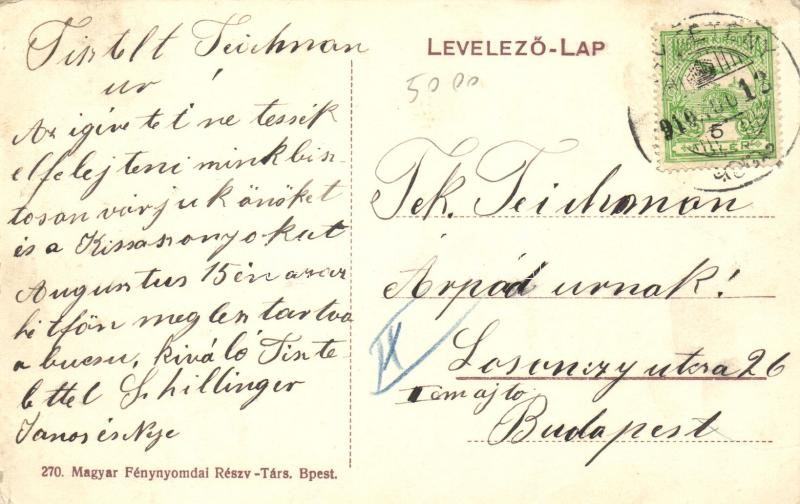 Tisztelt Teichman
ur
Az igéretet ne tessék
elfelejteni mink biz-
tosan várjuk önöket
és a Kissasonyokat
Augusztus 15 én azaz
hétfőn meg lesz tartva
a bucsu, kiváló Tiszte-
lettel Schillinger
Janos és Neje
270. Magyar Fénynyomdai Részv-Társ. Bpest.
LEVELEZŐ-LAP
5000
Tek. Teichman
Árpád urnak!
IX
Losonczy utcza 26
I em ajto
Budapest